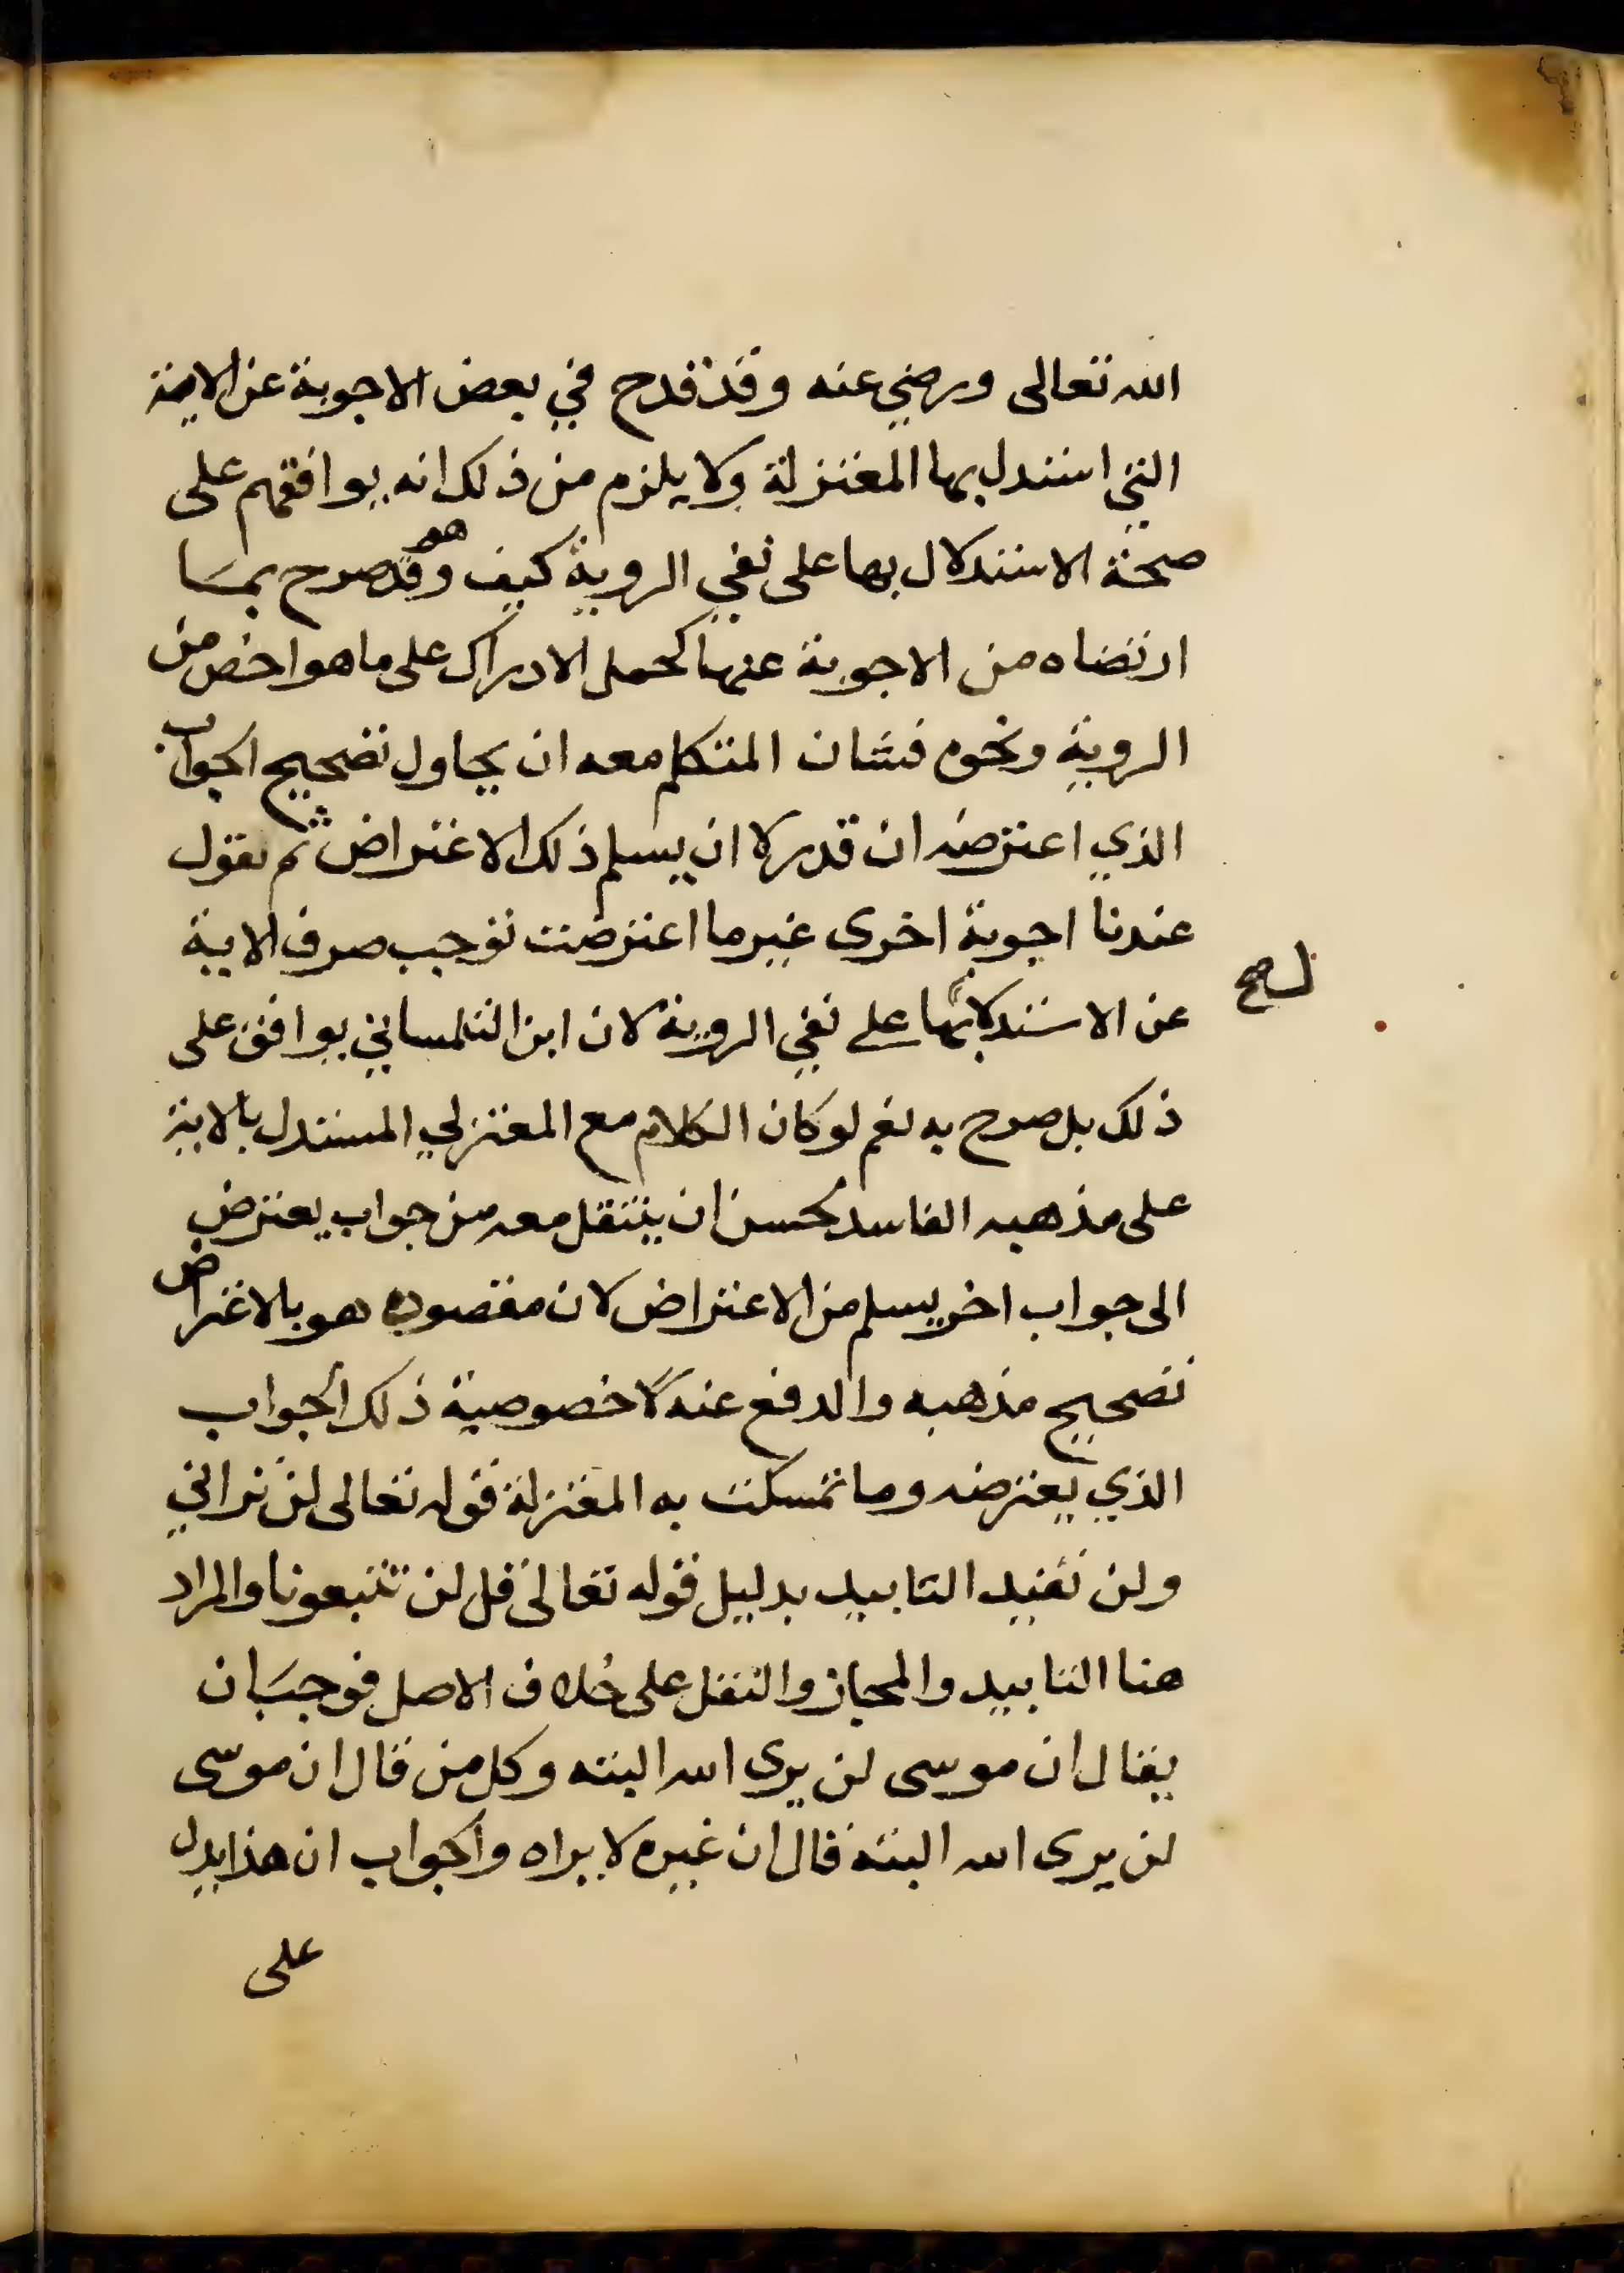 الله تعالى ورضي عنه وقد قدح في بعض الاجوبة عن الاية
التي استدل بها المعتزلة ولا يلزم من ذلك انه يوافقهم على
صحة الاستدلال بها على نفي الروية كيف وهو قد صرح بما
ارتضاه من الاجوبة عنها كحمل الادراك على ما هو اخص من
الروية ونحوه فشان المتكلم معه ان يحاول تصحيح الجواب
الذي اعترضه ان قدر لا ان يسلم ذلك الاعتراض ثم يقول
عندنا اجوبة اخرى غير ما اعترضت توجب صرف الاية
عن الاستدلال بها على نفي الروية لان ابن التلمساني يوافق على
ل صح
ذلك بل صرح به نعم لو كان الكلام مع المعتزلي المستدل بالاية
على مذهبه الفاسد لحسن ان ينتقل معه من جواب يعترض
الى جواب اخر يسلم من الاعتراض لان مقصوده هو بالاعتراض
تصحيح مذهبه والدفع عنه لا خصوصية ذلك الجواب
الذي يعترضه وما تمسكت به المعتزلة قوله تعالى لن تراني
ولن تفيد التابيد بدليل قوله تعالى قل لن تتبعونا والمراد
هنا التابيد والمجاز والنقل على خلاف الاصل فوجب ان
يقال ان موسى لن يرى الله البته وكل من قال ان موسى
لن يرى الله البته قال ان غيره لا يراه والجواب ان هذا يدل
على